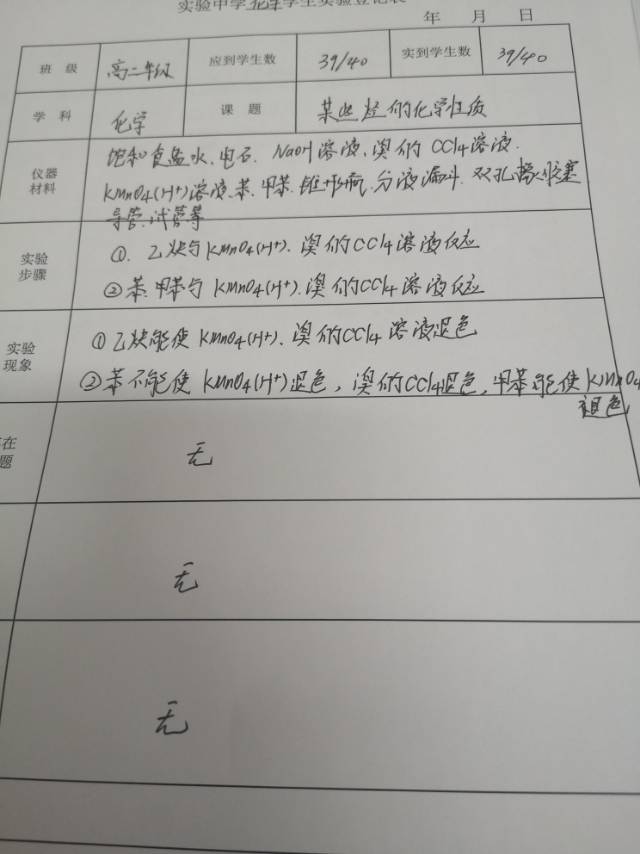 实验中学化学学生实验登记表
年 月 日
班 级 高二年级 应到学生数 39/40 实到学生数 39/40
学 科 化学 课 题 某些烃的化学性质
仪器材料
饱和食盐水、电石、NaOH溶液、溴的CCl4溶液、
KMnO4(H+)溶液、苯、甲苯、锥形瓶、分液漏斗、双孔橡胶塞
导管、试管等
实验步骤
①. 乙炔与KMnO4(H+)、溴的CCl4溶液反应
②苯、甲苯与KMnO4(H+)、溴的CCl4溶液反应
实验现象
①乙炔能使KMnO4(H+)、溴的CCl4溶液退色
②苯不能使KMnO4(H+)退色,溴的CCl4退色,甲苯能使KMnO4
褪色
在
题
无
无
无